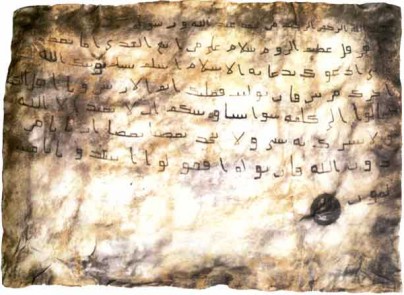 الله الرحمن الرحيم من محمد عبد الله ورسوله
هرقل عظيم الروم سلام على من اتبع الهدى اما بعد
ادعوك بدعاية الاسلام اسلم تسلم يوتك الله
اجرك مرتين فان توليت فعليك اثم
تعالوا الى كلمة سوا بيننا وبينكم ان لا نعبد الا الله
ولا نشرك به شيا ولا يتخذ بعضنا بعضا اربابا من
دون الله فان تولوا فقولوا اشهدوا بانا
مسلمون